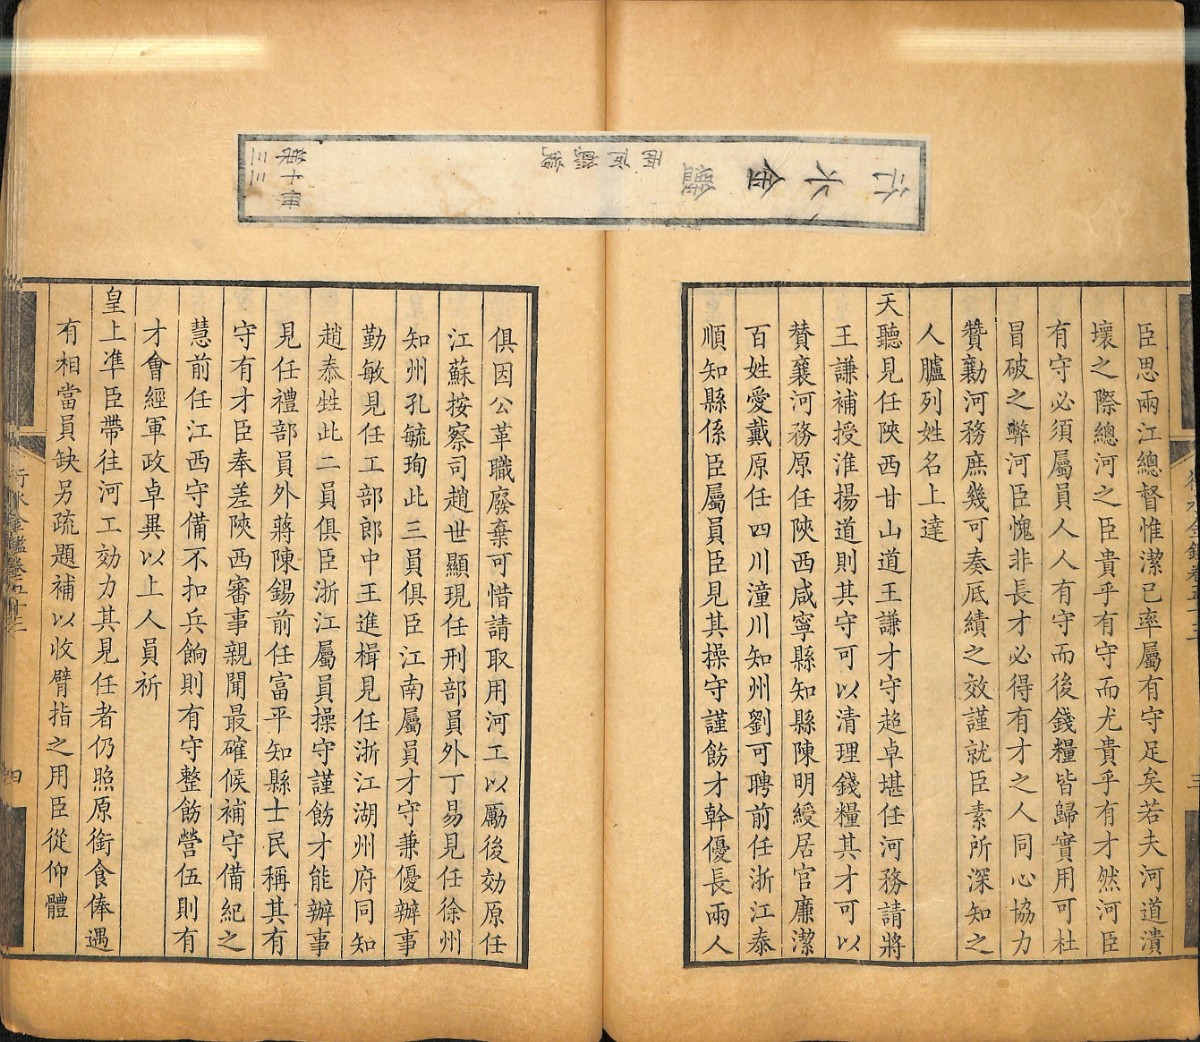 行水金鑑
臣思兩江總督惟潔已率屬有守足矣若夫河道潰
壞之際總河之臣貴乎有守而尤貴乎有才然河臣
有守必須屬員人人有守而後錢糧皆歸實用可杜
冒破之弊河臣愧非長才必得有才之人同心協力
贊勷河務庶幾可奏厎績之效謹就臣素所深知之
人臚列姓名上達
天聽見任陝西甘山道王謙才守超卓堪任河務請將
王謙補授淮揚道則其守可以清理錢糧其才可以
賛襄河務原任陝西咸寧縣知縣陳明綬居官廉潔
百姓愛戴原任四川潼川知州劉可聘前任浙江泰
順知縣係臣屬員臣見其操守謹飭才幹優長兩人
俱因公革職廢棄可惜請取用河工以勵後効原任
江蘇按察司趙世顯現任刑部員外丁易見任徐州
知州孔毓珣此三員俱臣江南屬員才守兼優辦事
勤敏見任工部郎中王進楫見任浙江湖州府同知
趙泰甡此二員俱臣浙江屬員操守謹飭才能辦事
見任禮部員外蔣陳錫前任富平知縣士民稱其有
守有才臣奉差陝西審事親聞最確候補守備紀之
慧前任江西守備不扣兵餉則有守整飭營伍則有
才會經軍政卓異以上人員祈
皇上準臣帶往河工効力其見任者仍照原銜食俸遇
有相當員缺另疏題補以收臂指之用臣從仰體
行水金鑑卷五十三
四